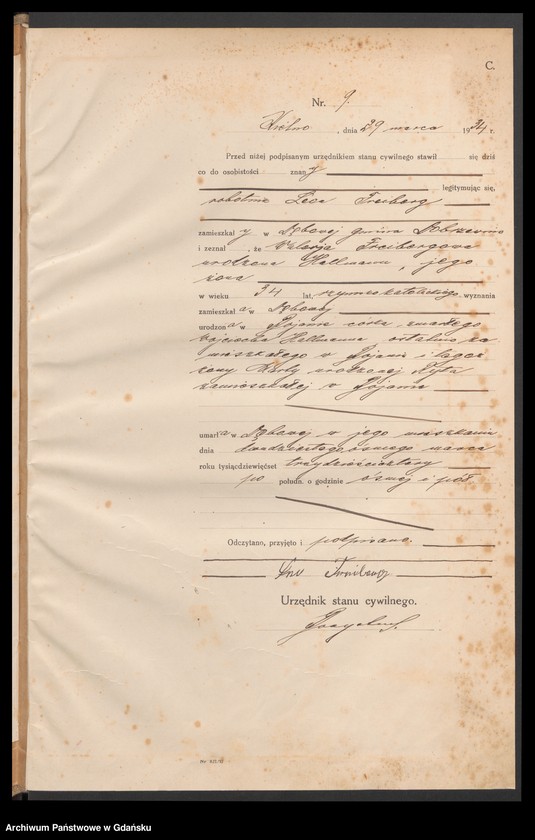 C.
Nr. 9.
Kielno, dnia 29 marca 1934 r.
Przed niżej podpisanym urzędnikiem stanu cywilnego stawił się dziś
co do osobistości znany
legitymując się,
robotnik Leon Freiberg
zamieszkały w gmina
i zeznał, że Valerja Freibergowa
urodzona Hallmann, jego
żona
w wieku 34 lat, rzymsko katolickiego wyznania
zamieszkała w
urodzona w córka zmarłego
Wojciecha Hallmanna, ostatnio za
mieszkałego w i tegoż
żony urodzonej
zamieszkałej w
umarła w w jego mieszkaniu
dnia dwudziestego ósmego marca
roku tysiącdziewięćset trzydziestoczwartego
po połudn. o godzinie ósmej i pół
Odczytano, przyjęto i podpisano.
Freiberg
Urzędnik stanu cywilnego.
Archiwum Państwowe w Gdańsku